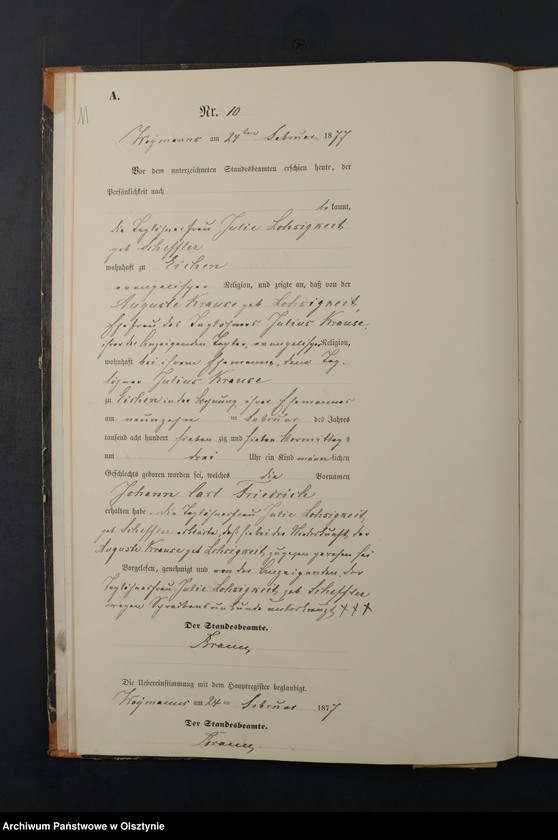 A.
11
Nr. 10
am 24ten Februar 1877
Vor dem unterzeichneten Standesbeamten erschien heute, der
Persönlichkeit nach
be kannt,
die Taglöhnerfrau Julie Lohsigkeit
geb Scheffler
wohnhaft zu Eichen
evangelischer Religion, und zeigte an, daß von der
Auguste Krause geb Lohsigkeit,
Ehefrau des Taglöhners Julius Krause,
ihrer der Anzeigenden Tochter, evangelischer Religion,
wohnhaft bei ihrem Ehemanne, dem Tag-
löhner Julius Krause
zu Eichen in der Wohnung ihres Ehemannes
am neunzehn ten Februar des Jahres
tausend acht hundert sieben zig und sieben Vormittags
um drei Uhr ein Kind männlichen
Geschlechts geboren worden sei, welches die Vornamen
Johann Carl Friedrich
erhalten habe. Die Taglöhnerfrau Julie Lohsigkeit,
geb Scheffler erklärte, daß sie bei der Niederkunft der
Auguste Krause geb Lohsigkeit, zugegen gewesen sei
Vorgelesen, genehmigt und von der Anzeigenden, der
Taglöhnerfrau Julie Lohsigkeit, geb Scheffler
wegen Schreibensunkunde unterkreuzt, + + +
Der Standesbeamte.
Die Uebereinstimmung mit dem Hauptregister beglaubigt.
am 24ten Februar 1877
Der Standesbeamte.
Archiwum Państwowe w Olsztynie